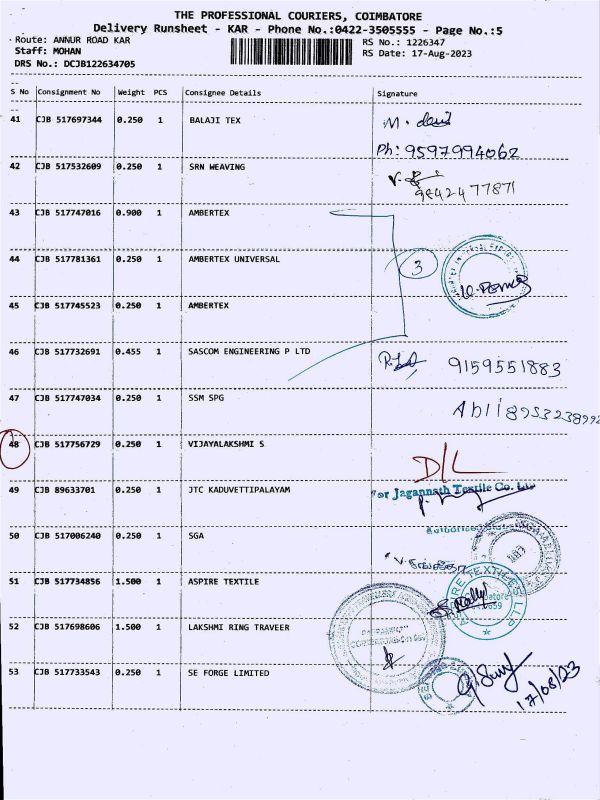 THE PROFESSIONAL COURIERS, COIMBATORE
Delivery Runsheet - KAR - Phone No.:0422-3505555 - Page No.:5
Route: ANNUR ROAD KAR
RS No.: 1226347
Staff: MOHAN
RS Date: 17-Aug-2023
DRS No.: DCJB122634705
S No Consignment No Weight PCS Consignee Details Signature
41 CJB 517697344 0.250 1 BALAJI TEX
Ph: 9597994062
42 CJB 517532609 0.250 1 SRN WEAVING
9842477871
43 CJB 517747016 0.900 1 AMBERTEX
44 CJB 517781361 0.250 1 AMBERTEX UNIVERSAL 3
45 CJB 517745523 0.250 1 AMBERTEX
46 CJB 517732691 0.455 1 SASCOM ENGINEERING P LTD 9159551883
47 CJB 517747034 0.250 1 SSM SPG
48 CJB 517756729 0.250 1 VIJAYALAKSHMI S D/L
49 CJB 89633701 0.250 1 JTC KADUVETTIPALAYAM
For Jagannath Textile Co. Ltd
50 CJB 517006240 0.250 1 SGA
51 CJB 517734856 1.500 1 ASPIRE TEXTILE
52 CJB 517698606 1.500 1 LAKSHMI RING TRAVEER
53 CJB 517733543 0.250 1 SE FORGE LIMITED
17/08/23